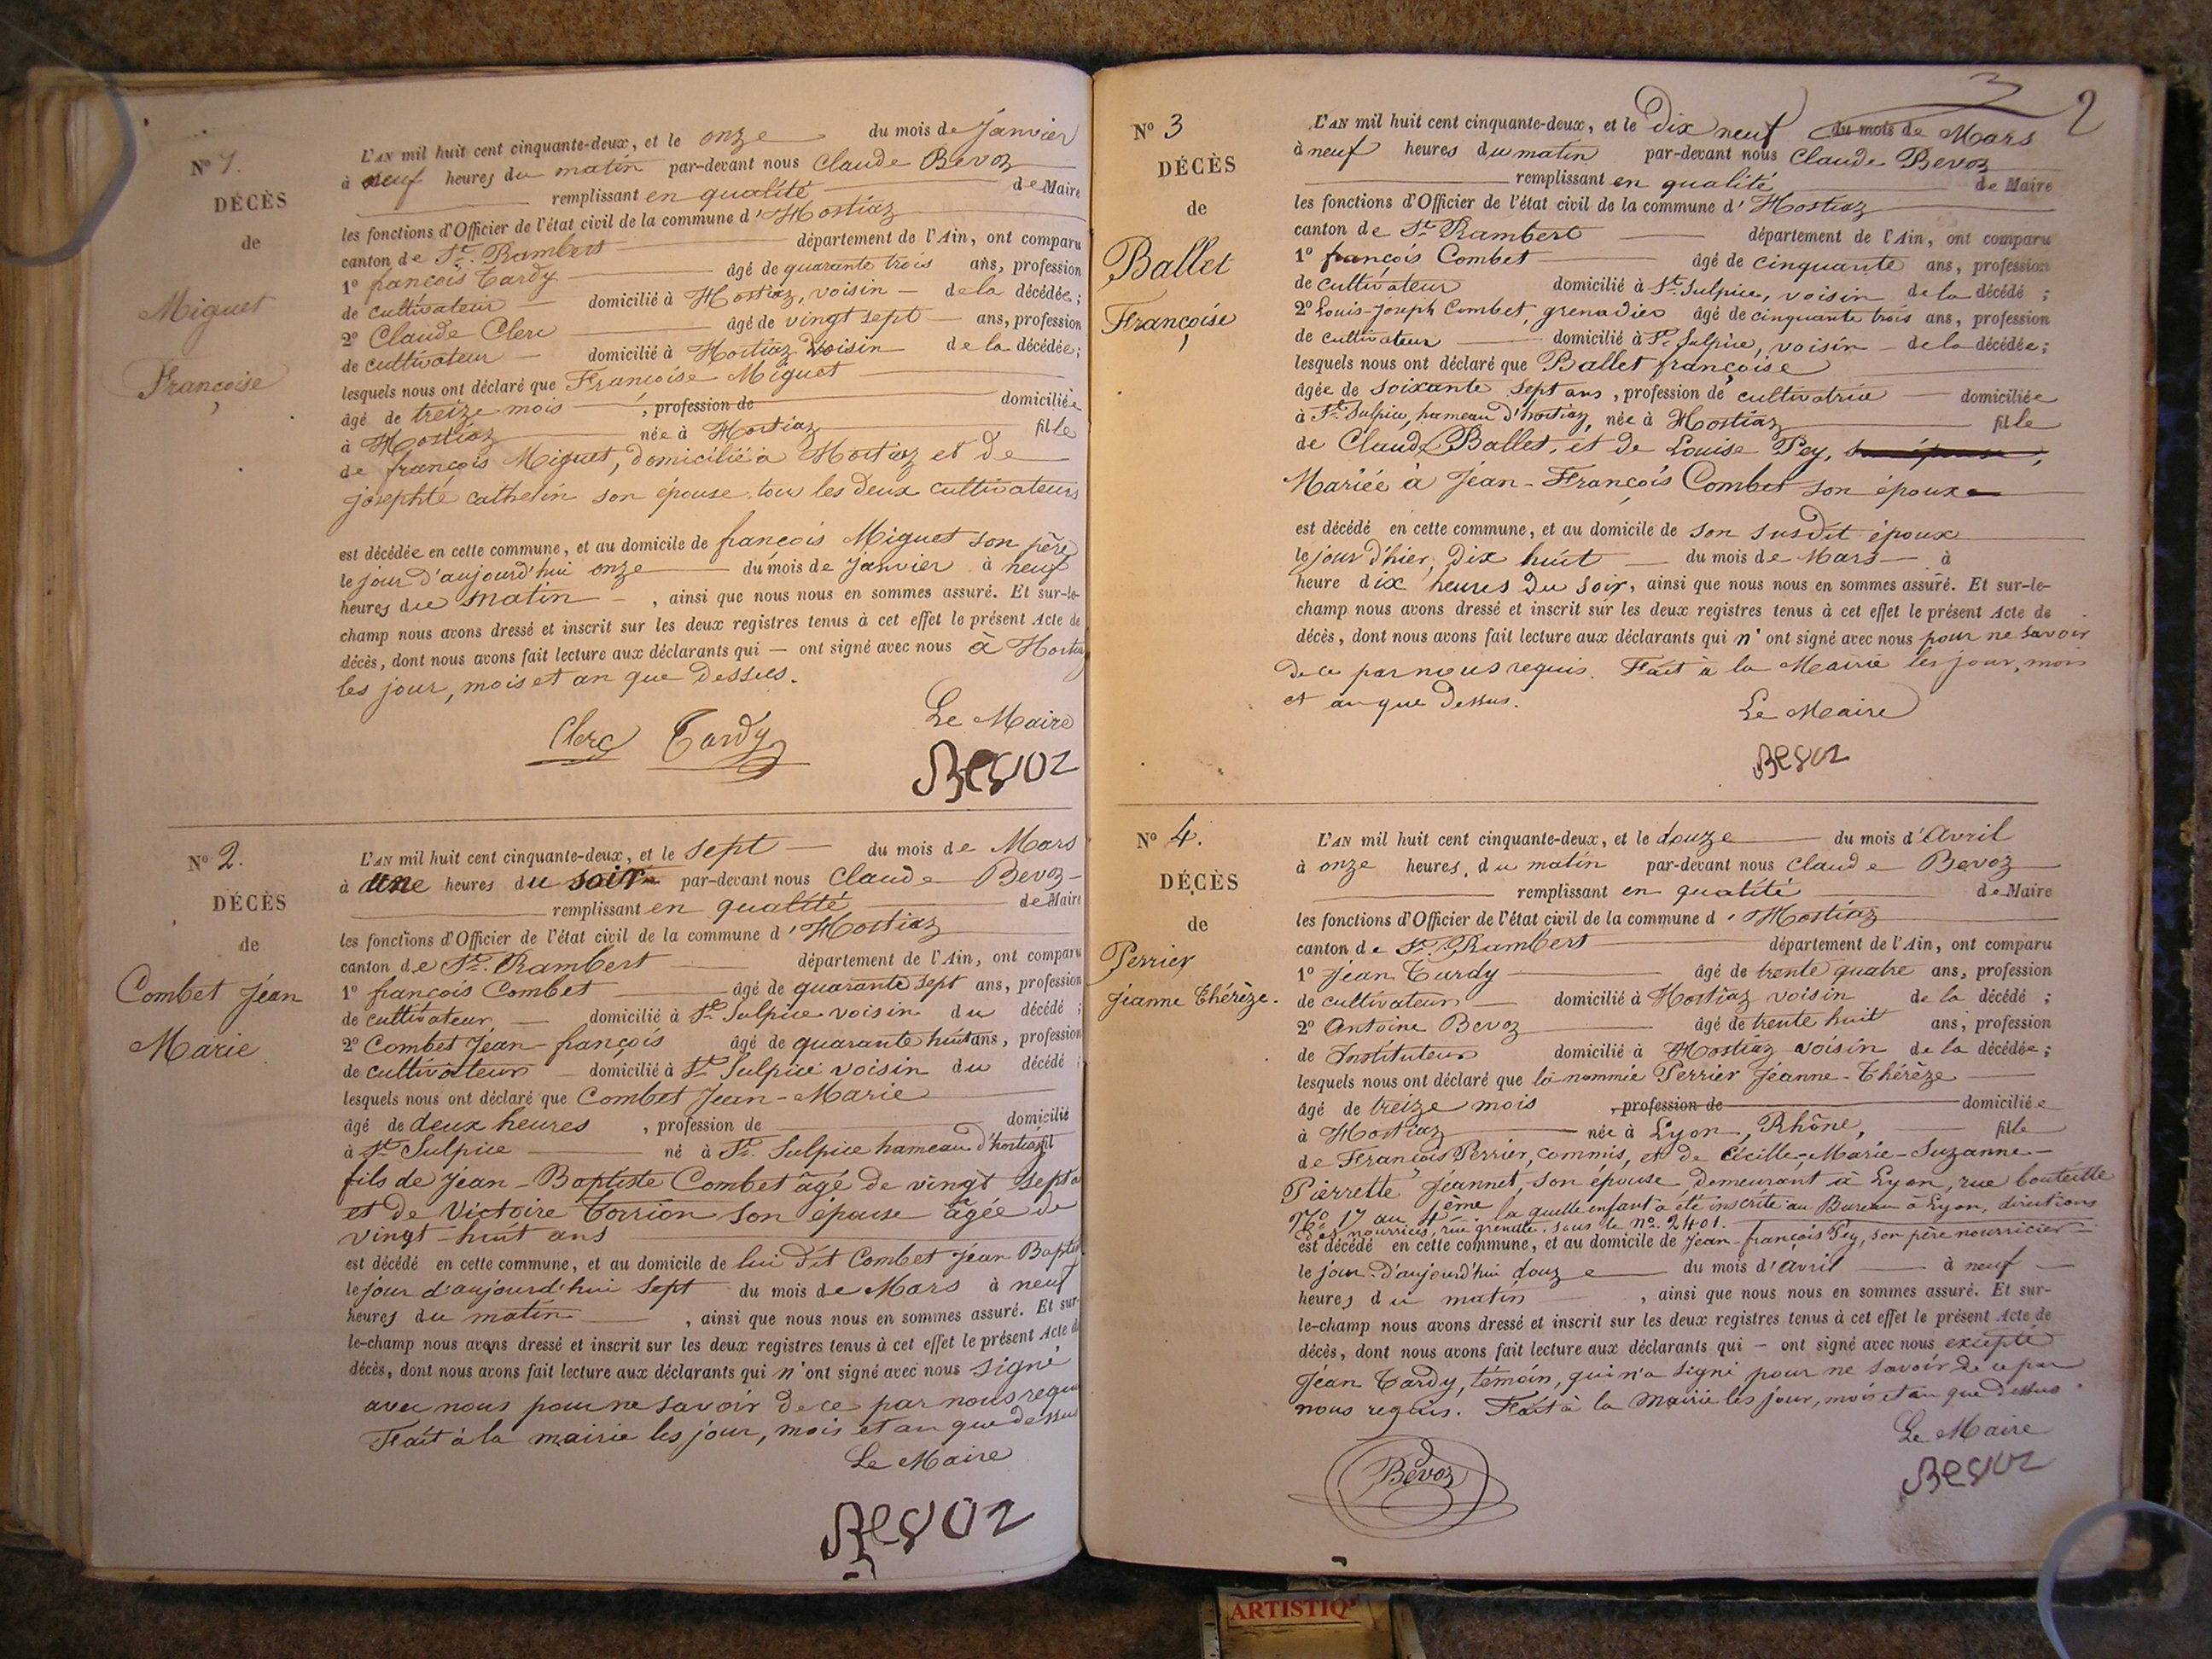 N° 1.
DÉCÈS
de
Miguet
Françoise
L'AN mil huit cent cinquante-deux, et le onze du mois de Janvier
à neuf heures du matin par-devant nous Claude Bevoz
remplissant en qualité de Maire
les fonctions d'Officier de l'état civil de la commune d'Hostiaz
canton de St. Rambert département de l'Ain, ont comparu
1° françois Tardy âgé de quarante trois ans, profession
de cultivateur domicilié à Hostiaz, voisin de la décédée;
2° Claude Clerc âgé de vingt sept ans, profession
de cultivateur domicilié à Hostiaz voisin de la décédée;
lesquels nous ont déclaré que Françoise Miguet
âgé de treize mois, profession de domiciliée
à Hostiaz née à Hostiaz fille
de françois Miguet, domicilié à Hostiaz et de
josephte cathelin son épouse tous les deux cultivateurs
est décédée en cette commune, et au domicile de françois Miguet son père
le jour d'aujourd'hui onze du mois de Janvier à neuf
heures du matin, ainsi que nous nous en sommes assuré. Et sur-le-
champ nous avons dressé et inscrit sur les deux registres tenus à cet effet le présent Acte de
décès, dont nous avons fait lecture aux déclarants qui — ont signé avec nous à Hostiaz
les jour, mois et an que dessus.
Le Maire
Clerc Tardy
Bevoz
N° 2.
DÉCÈS
de
Combet Jean
Marie
L'AN mil huit cent cinquante-deux, et le sept du mois de Mars
à une heures du soir par-devant nous Claude Bevoz
remplissant en qualité de Maire
les fonctions d'Officier de l'état civil de la commune d'Hostiaz
canton de St. Rambert département de l'Ain, ont comparu
1° françois Combet âgé de quarante sept ans, profession
de cultivateur domicilié à St. Sulpice voisin du décédé;
2° Combet Jean-françois âgé de quarante huit ans, profession
de cultivateur domicilié à St. Sulpice voisin du décédé;
lesquels nous ont déclaré que Combet Jean-Marie
âgé de deux heures, profession de domicilié
à St. Sulpice né à St. Sulpice hameau d'hostiaz fil
fils de Jean-Baptiste Combet âgé de vingt sept a
et de Victoire Torrion son épouse âgée de
vingt-huit ans
est décédé en cette commune, et au domicile de lui dit Combet Jean Bapte.
le jour d'aujourd'hui sept du mois de Mars à neuf
heures du matin, ainsi que nous nous en sommes assuré. Et sur-
le-champ nous avons dressé et inscrit sur les deux registres tenus à cet effet le présent Acte de
décès, dont nous avons fait lecture aux déclarants qui n'ont signé avec nous signé
avec nous pour ne savoir de ce par nous requis
Fait à la mairie les jour, mois et an que dessus
Le Maire
Bevoz
3 2
N° 3
DÉCÈS
de
Ballet
Françoise
L'AN mil huit cent cinquante-deux, et le Dix neuf du mois de Mars
à neuf heures du matin par-devant nous Claude Bevoz
remplissant en qualité de Maire
les fonctions d'Officier de l'état civil de la commune d'Hostiaz
canton de St. Rambert département de l'Ain, ont comparu
1° françois Combet âgé de cinquante ans, profession
de cultivateur domicilié à St. Sulpice, voisin de la décédé;
2° Louis-Joseph Combet, grenadier âgé de cinquante trois ans, profession
de cultivateur domicilié à St. Sulpice, voisin de la décédée;
lesquels nous ont déclaré que Ballet françoise
âgée de soixante sept ans, profession de cultivatrice domiciliée
à St. Sulpice, hameau d'hostiaz, née à Hostiaz fille
de Claude Ballet, et de Louise Pey, son épouse,
Mariée à Jean-François Combet son époux
est décédé en cette commune, et au domicile de son susdit époux
le jour d'hier, dix huit du mois de Mars à
heure dix heures du soir, ainsi que nous nous en sommes assuré. Et sur-le-
champ nous avons dressé et inscrit sur les deux registres tenus à cet effet le présent Acte de
décès, dont nous avons fait lecture aux déclarants qui n'ont signé avec nous pour ne savoir
de ce par nous requis. Fait à la Mairie les jour, mois
et an que dessus.
Le Maire
Bevoz
N° 4.
DÉCÈS
de
Perrier
Jeanne Thérèze.
L'AN mil huit cent cinquante-deux, et le douze du mois d'Avril
à onze heures, du matin par-devant nous Claude Bevoz
remplissant en qualité de Maire
les fonctions d'Officier de l'état civil de la commune d'Hostiaz
canton de St. Rambert département de l'Ain, ont comparu
1° Jean Tardy âgé de trente quatre ans, profession
de cultivateur domicilié à Hostiaz voisin de la décédé;
2° Antoine Bevoz âgé de trente huit ans, profession
de Instituteur domicilié à Hostiaz voisin de la décédée;
lesquels nous ont déclaré que la nommée Perrier Jeanne-Thérèze
âgé de treize mois, profession de domiciliée
à Hostiaz née à Lyon, Rhône, fille
de François Perrier, commis, et de Cécille-Marie-Suzanne-
Pierrette Jeannet, son épouse demeurant à Lyon, rue bouteille
N° 17 au 4ème. la quelle enfant a été inscrite au Bureau à Lyon, directions
des nourrices, rue grenette, sous le N° 2401.
est décédé en cette commune, et au domicile de Jean-françois Pey, son père nourricier
le jour d'aujourd'hui douze du mois d'avril à neuf
heures du matin, ainsi que nous nous en sommes assuré. Et sur-
le-champ nous avons dressé et inscrit sur les deux registres tenus à cet effet le présent Acte de
décès, dont nous avons fait lecture aux déclarants qui — ont signé avec nous excepté
Jean Tardy, témoin, qui n'a signé pour ne savoir de ce par
nous requis. Fait à la mairie les jour, mois et an que dessus.
Le Maire
Bevoz
Bevoz
ARTISTIQ